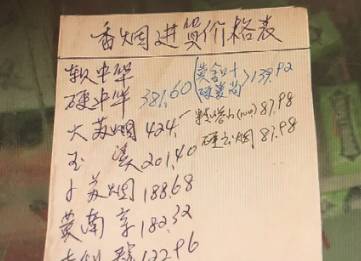 香烟进货价格表
软中华
硬中华 381.60 (黄金叶 硬黄尚) 139.92
大苏烟 424.-
玉溪 201.40 硬云烟 87.98
小苏烟 188.68
黄南京 182.32
122.96